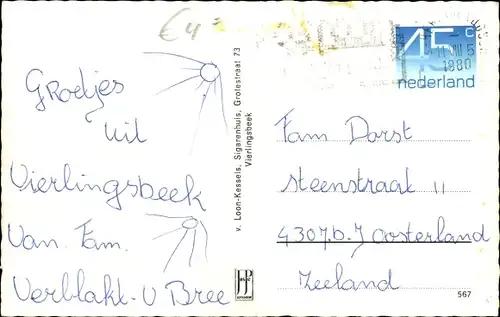 €4
Groetjes
uit
Vierlingsbeek
Van Fam.
Verblakt-v Bree
v. Loon-Kessels, Sigarenhuis, Grotestraat 73
Vierlingsbeek
45 c
nederland
1980
Fam Dorst
steenstraat 11
4307.b.J Oosterland
Zeeland
567